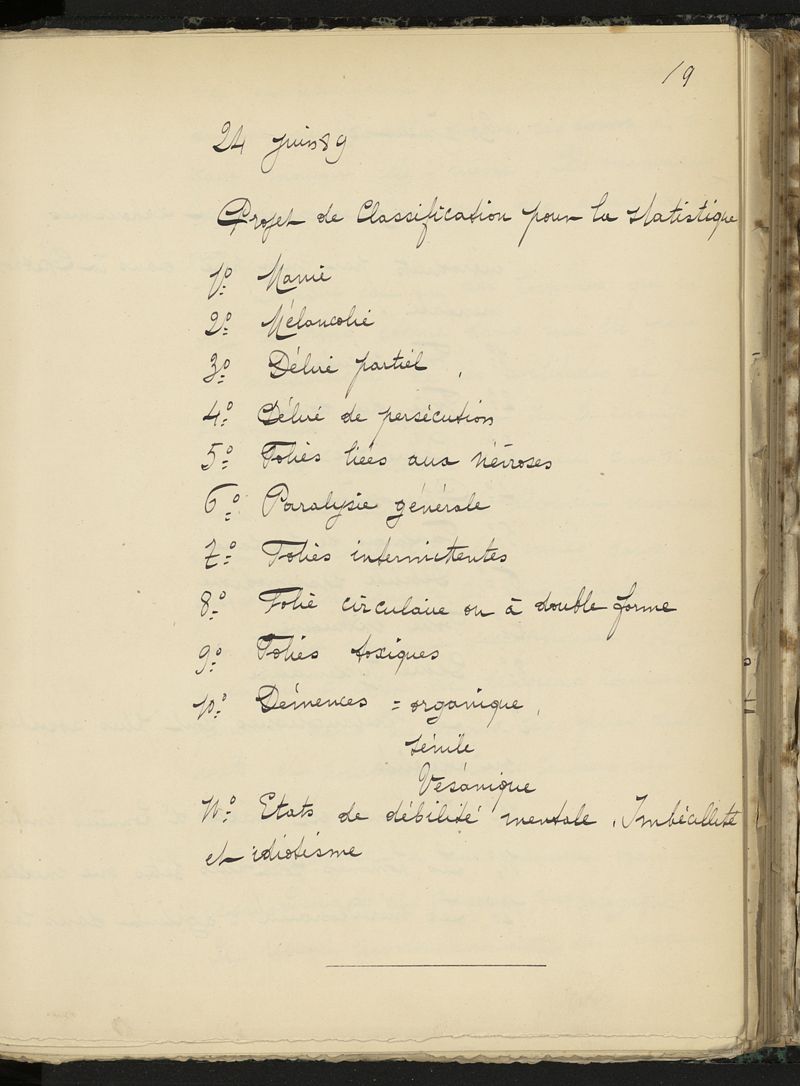 19
24 juin 89
Projet de Classification pour la statistique
1º Manie
2º Mélancolie
3º Délire partiel
4º Délire de persécution
5º Folies liées aux névroses
6º Paralysie générale
7º Folies intermittentes
8º Folie circulaire ou à double forme
9º Folies toxiques
10º Démences = organique,
sénile
Vésanique
11º Etats de débilité mentale, Imbécillité
et idiotisme